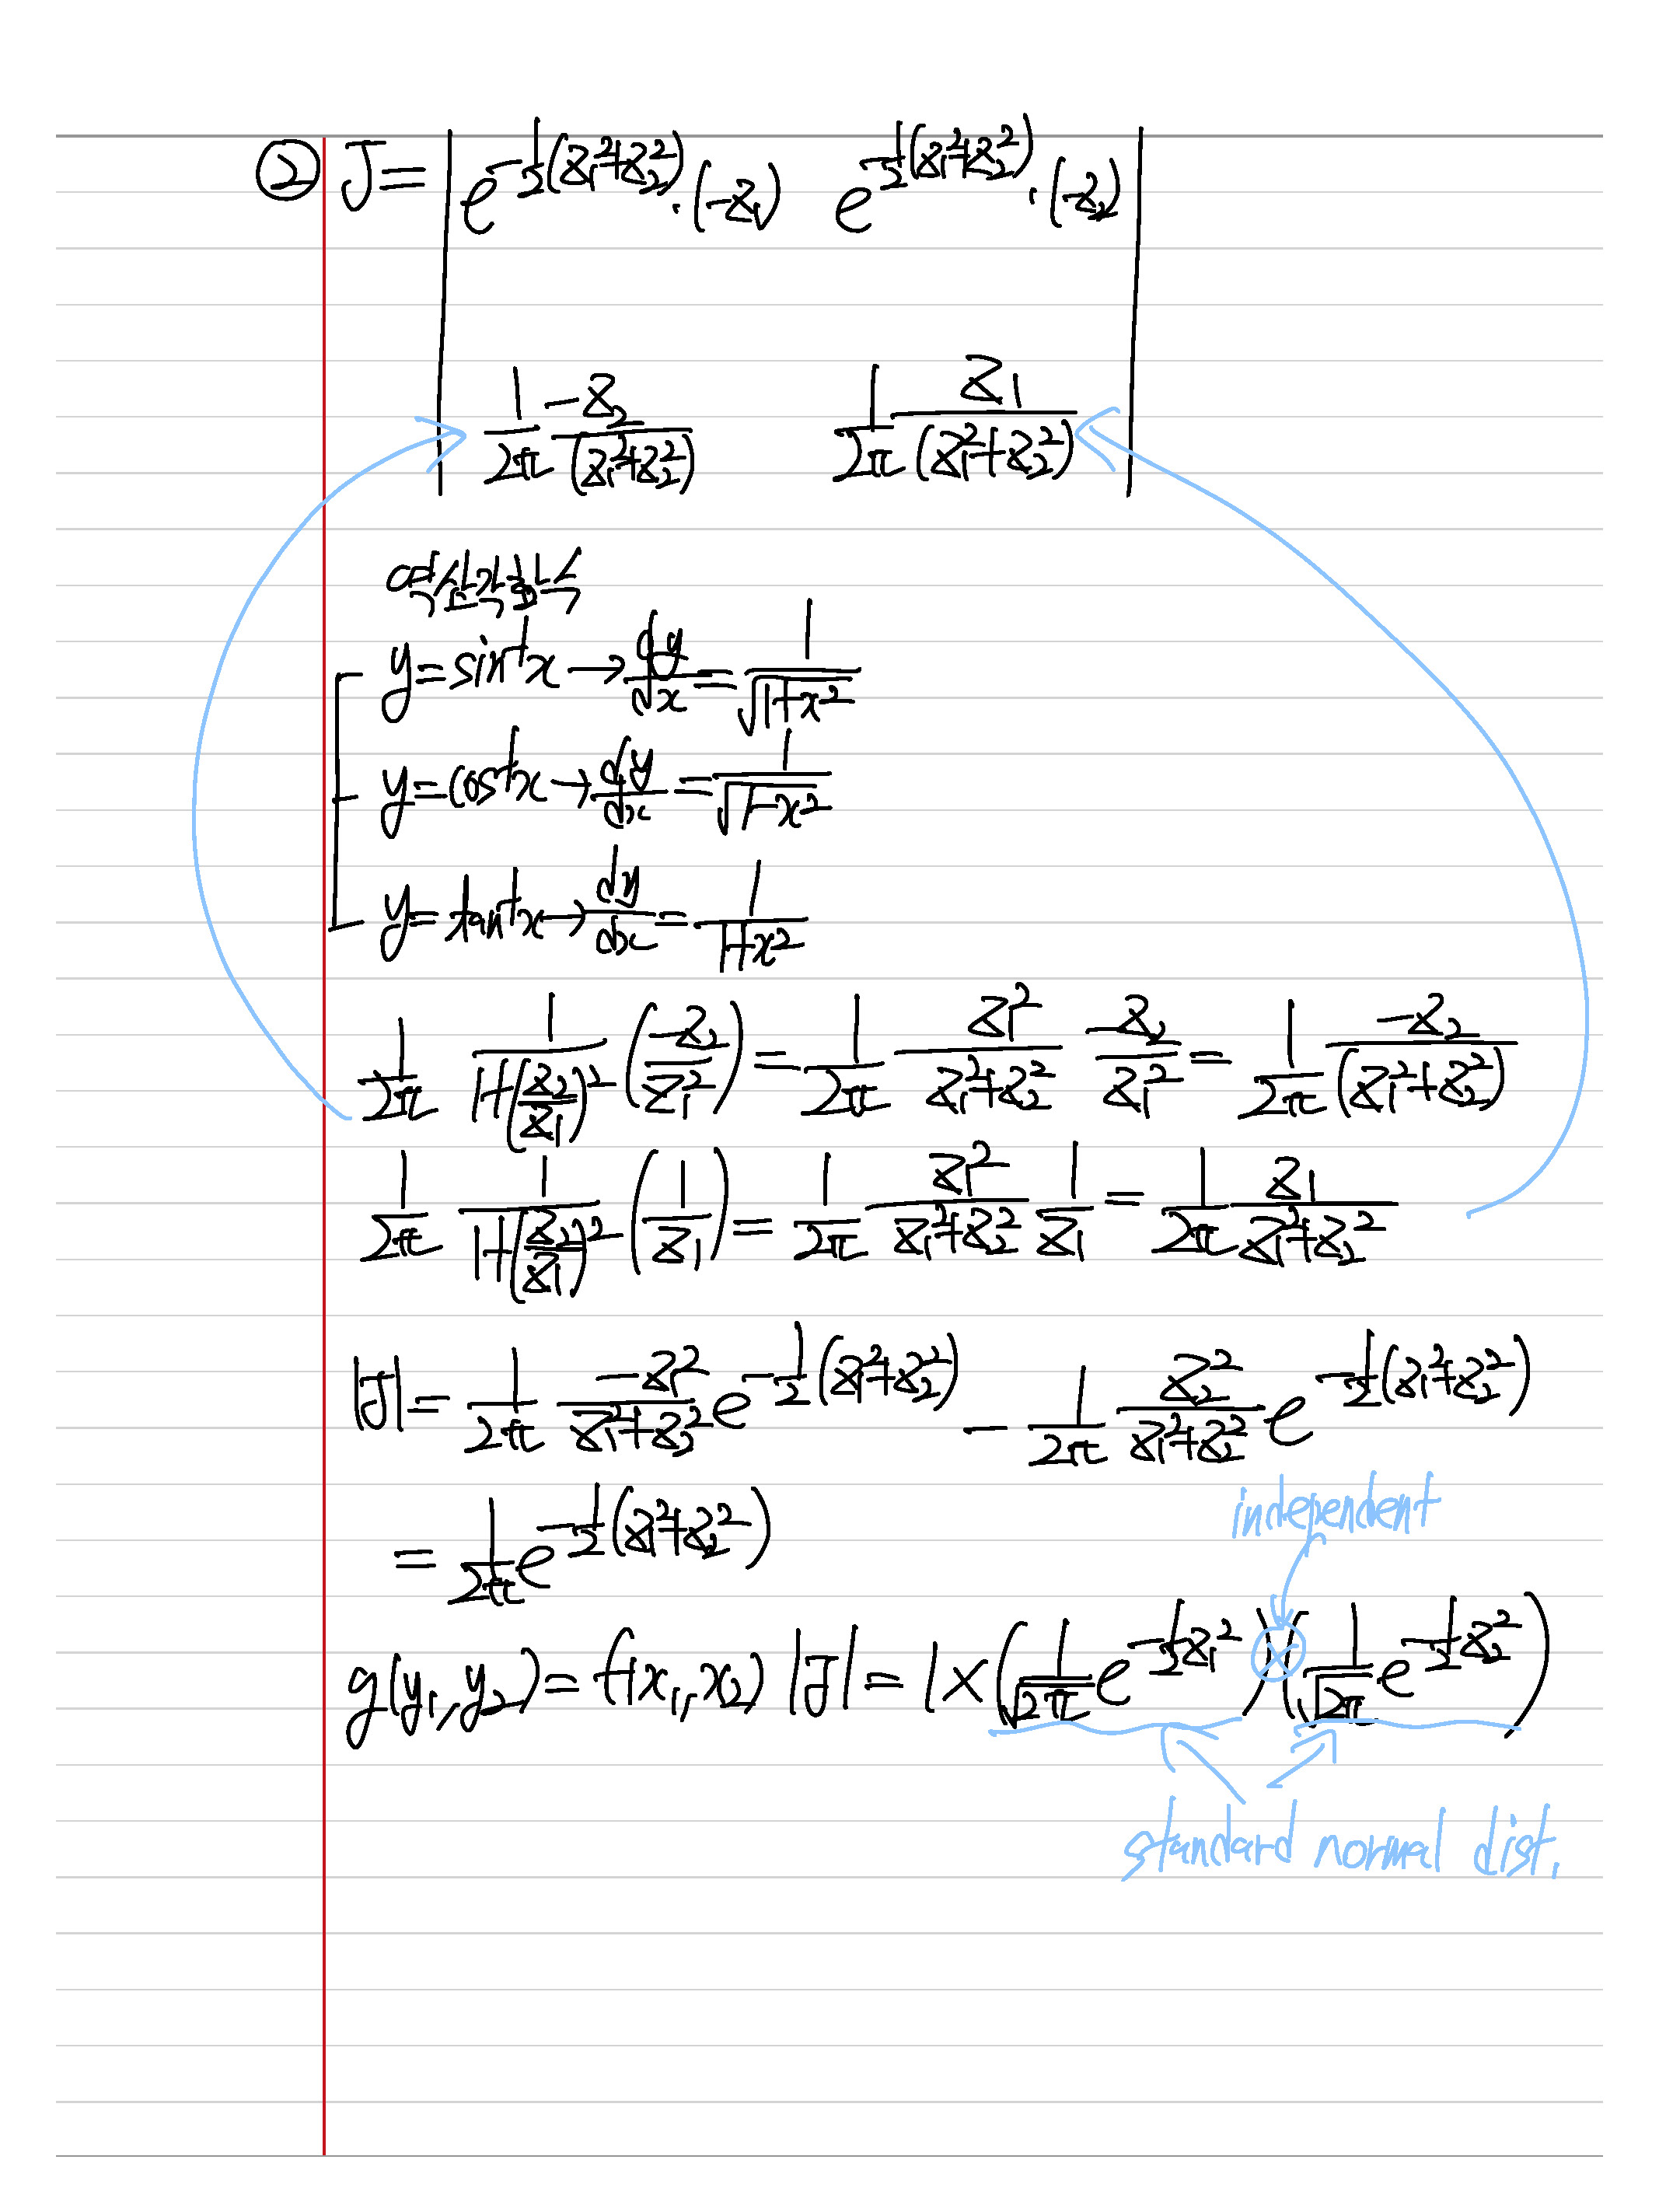 ② J = | e^{-\frac{1}{2}(z_1^2+z_2^2)}·(-z_1)  e^{-\frac{1}{2}(z_1^2+z_2^2)}·(-z_2) |
| \frac{1}{2π} \frac{-z_2}{(z_1^2+z_2^2)}  \frac{1}{2π} \frac{z_1}{(z_1^2+z_2^2)} |
역삼각함수
y = sin^{-1}x → \frac{dy}{dx} = \frac{1}{\sqrt{1+x^2}}
y = cos^{-1}x → \frac{dy}{dx} = \frac{1}{\sqrt{1-x^2}}
y = tan^{-1}x → \frac{dy}{dx} = \frac{1}{1+x^2}
\frac{1}{2π} \frac{1}{1+(\frac{z_2}{z_1})^2} (\frac{-z_2}{z_1^2}) = \frac{1}{2π} \frac{z_1^2}{z_1^2+z_2^2} \frac{-z_2}{z_1^2} = \frac{1}{2π} \frac{-z_2}{(z_1^2+z_2^2)}
\frac{1}{2π} \frac{1}{1+(\frac{z_2}{z_1})^2} (\frac{1}{z_1}) = \frac{1}{2π} \frac{z_1^2}{z_1^2+z_2^2} \frac{1}{z_1} = \frac{1}{2π} \frac{z_1}{z_1^2+z_2^2}
|J| = \frac{1}{2π} \frac{-z_1^2}{z_1^2+z_2^2} e^{-\frac{1}{2}(z_1^2+z_2^2)} - \frac{1}{2π} \frac{z_2^2}{z_1^2+z_2^2} e^{-\frac{1}{2}(z_1^2+z_2^2)}
= \frac{1}{2π} e^{-\frac{1}{2}(z_1^2+z_2^2)}
independent
g(y_1, y_2) = f(x_1, x_2) |J| = 1 × (\frac{1}{\sqrt{2π}} e^{-\frac{1}{2}z_1^2}) × (\frac{1}{\sqrt{2π}} e^{-\frac{1}{2}z_2^2})
standard normal dist.